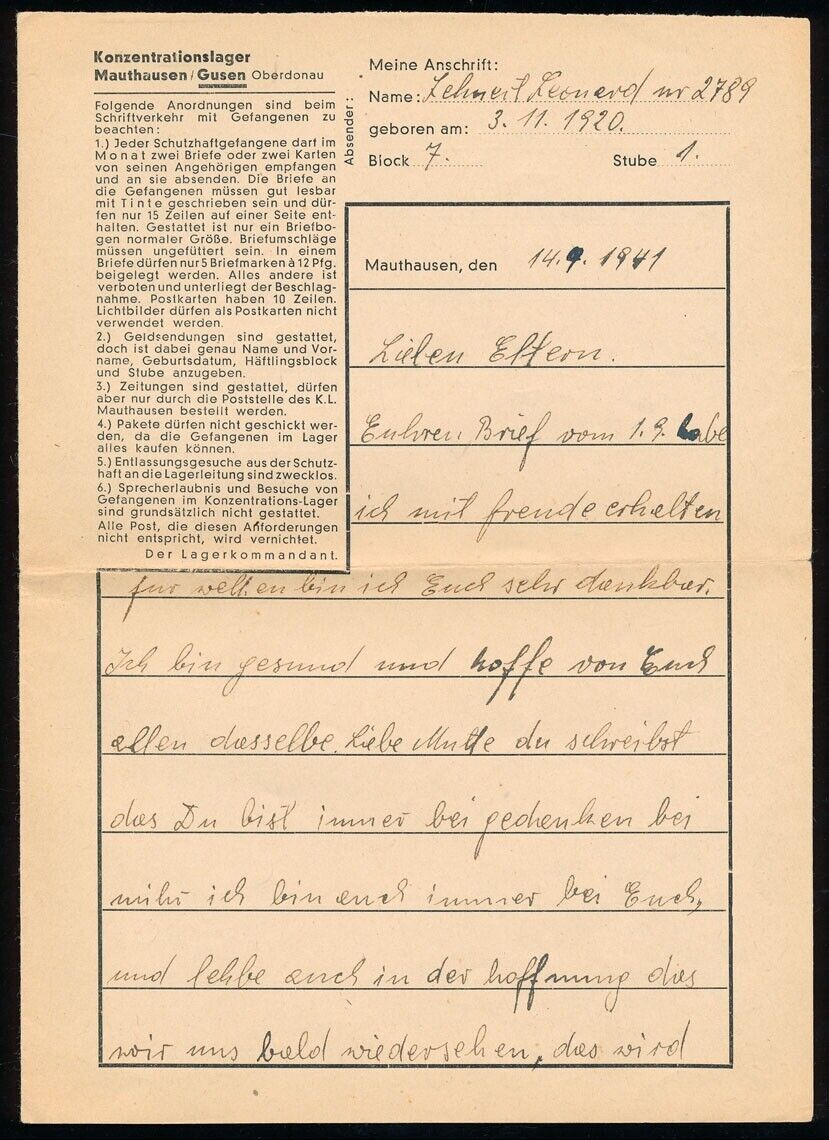 Konzentrationslager
Mauthausen/Gusen Oberdonau
Folgende Anordnungen sind beim
Schriftverkehr mit Gefangenen zu
beachten:
1.) Jeder Schutzhaftgefangene darf im
Monat zwei Briefe oder zwei Karten
von seinen Angehörigen empfangen
und an sie absenden. Die Briefe an
die Gefangenen müssen gut lesbar
mit Tinte geschrieben sein und dür-
fen nur 15 Zeilen auf einer Seite ent-
halten. Gestattet ist nur ein Briefbo-
gen normaler Größe. Briefumschläge
müssen ungefüttert sein. In einem
Briefe dürfen nur 5 Briefmarken à 12 Pfg.
beigelegt werden. Alles andere ist
verboten und unterliegt der Beschlag-
nahme. Postkarten haben 10 Zeilen.
Lichtbilder dürfen als Postkarten nicht
verwendet werden.
2.) Geldsendungen sind gestattet,
doch ist dabei genau Name und Vor-
name, Geburtsdatum, Häftlingsblock
und Stube anzugeben.
3.) Zeitungen sind gestattet, dürfen
aber nur durch die Poststelle des K.L.
Mauthausen bestellt werden.
4.) Pakete dürfen nicht geschickt wer-
den, da die Gefangenen im Lager
alles kaufen können.
5.) Entlassungsgesuche aus der Schutz-
haft an die Lagerleitung sind zwecklos.
6.) Sprecherlaubnis und Besuche von
Gefangenen im Konzentrations-Lager
sind grundsätzlich nicht gestattet.
Alle Post, die diesen Anforderungen
nicht entspricht, wird vernichtet.
Der Lagerkommandant.
Absender:
Meine Anschrift:
Name: Leonard nr 2789
geboren am: 3. 11. 1920.
Block 7. Stube 1.
Mauthausen, den 14.9.1941
Lieben Eltern.
Euhren Brief vom 1.9. habe
ich mit freude erhalten
fur welchen bin ich Euch sehr dankbar.
Ich bin gesund und hoffe von Euch
allen dasselbe. Liebe Mutte du schreibst
das Du bist immer bei gedenken bei
mihr ich bin auch immer bei Euch,
und lehbe auch in der hoffnung das
wir uns bald wiedersehen, das wird